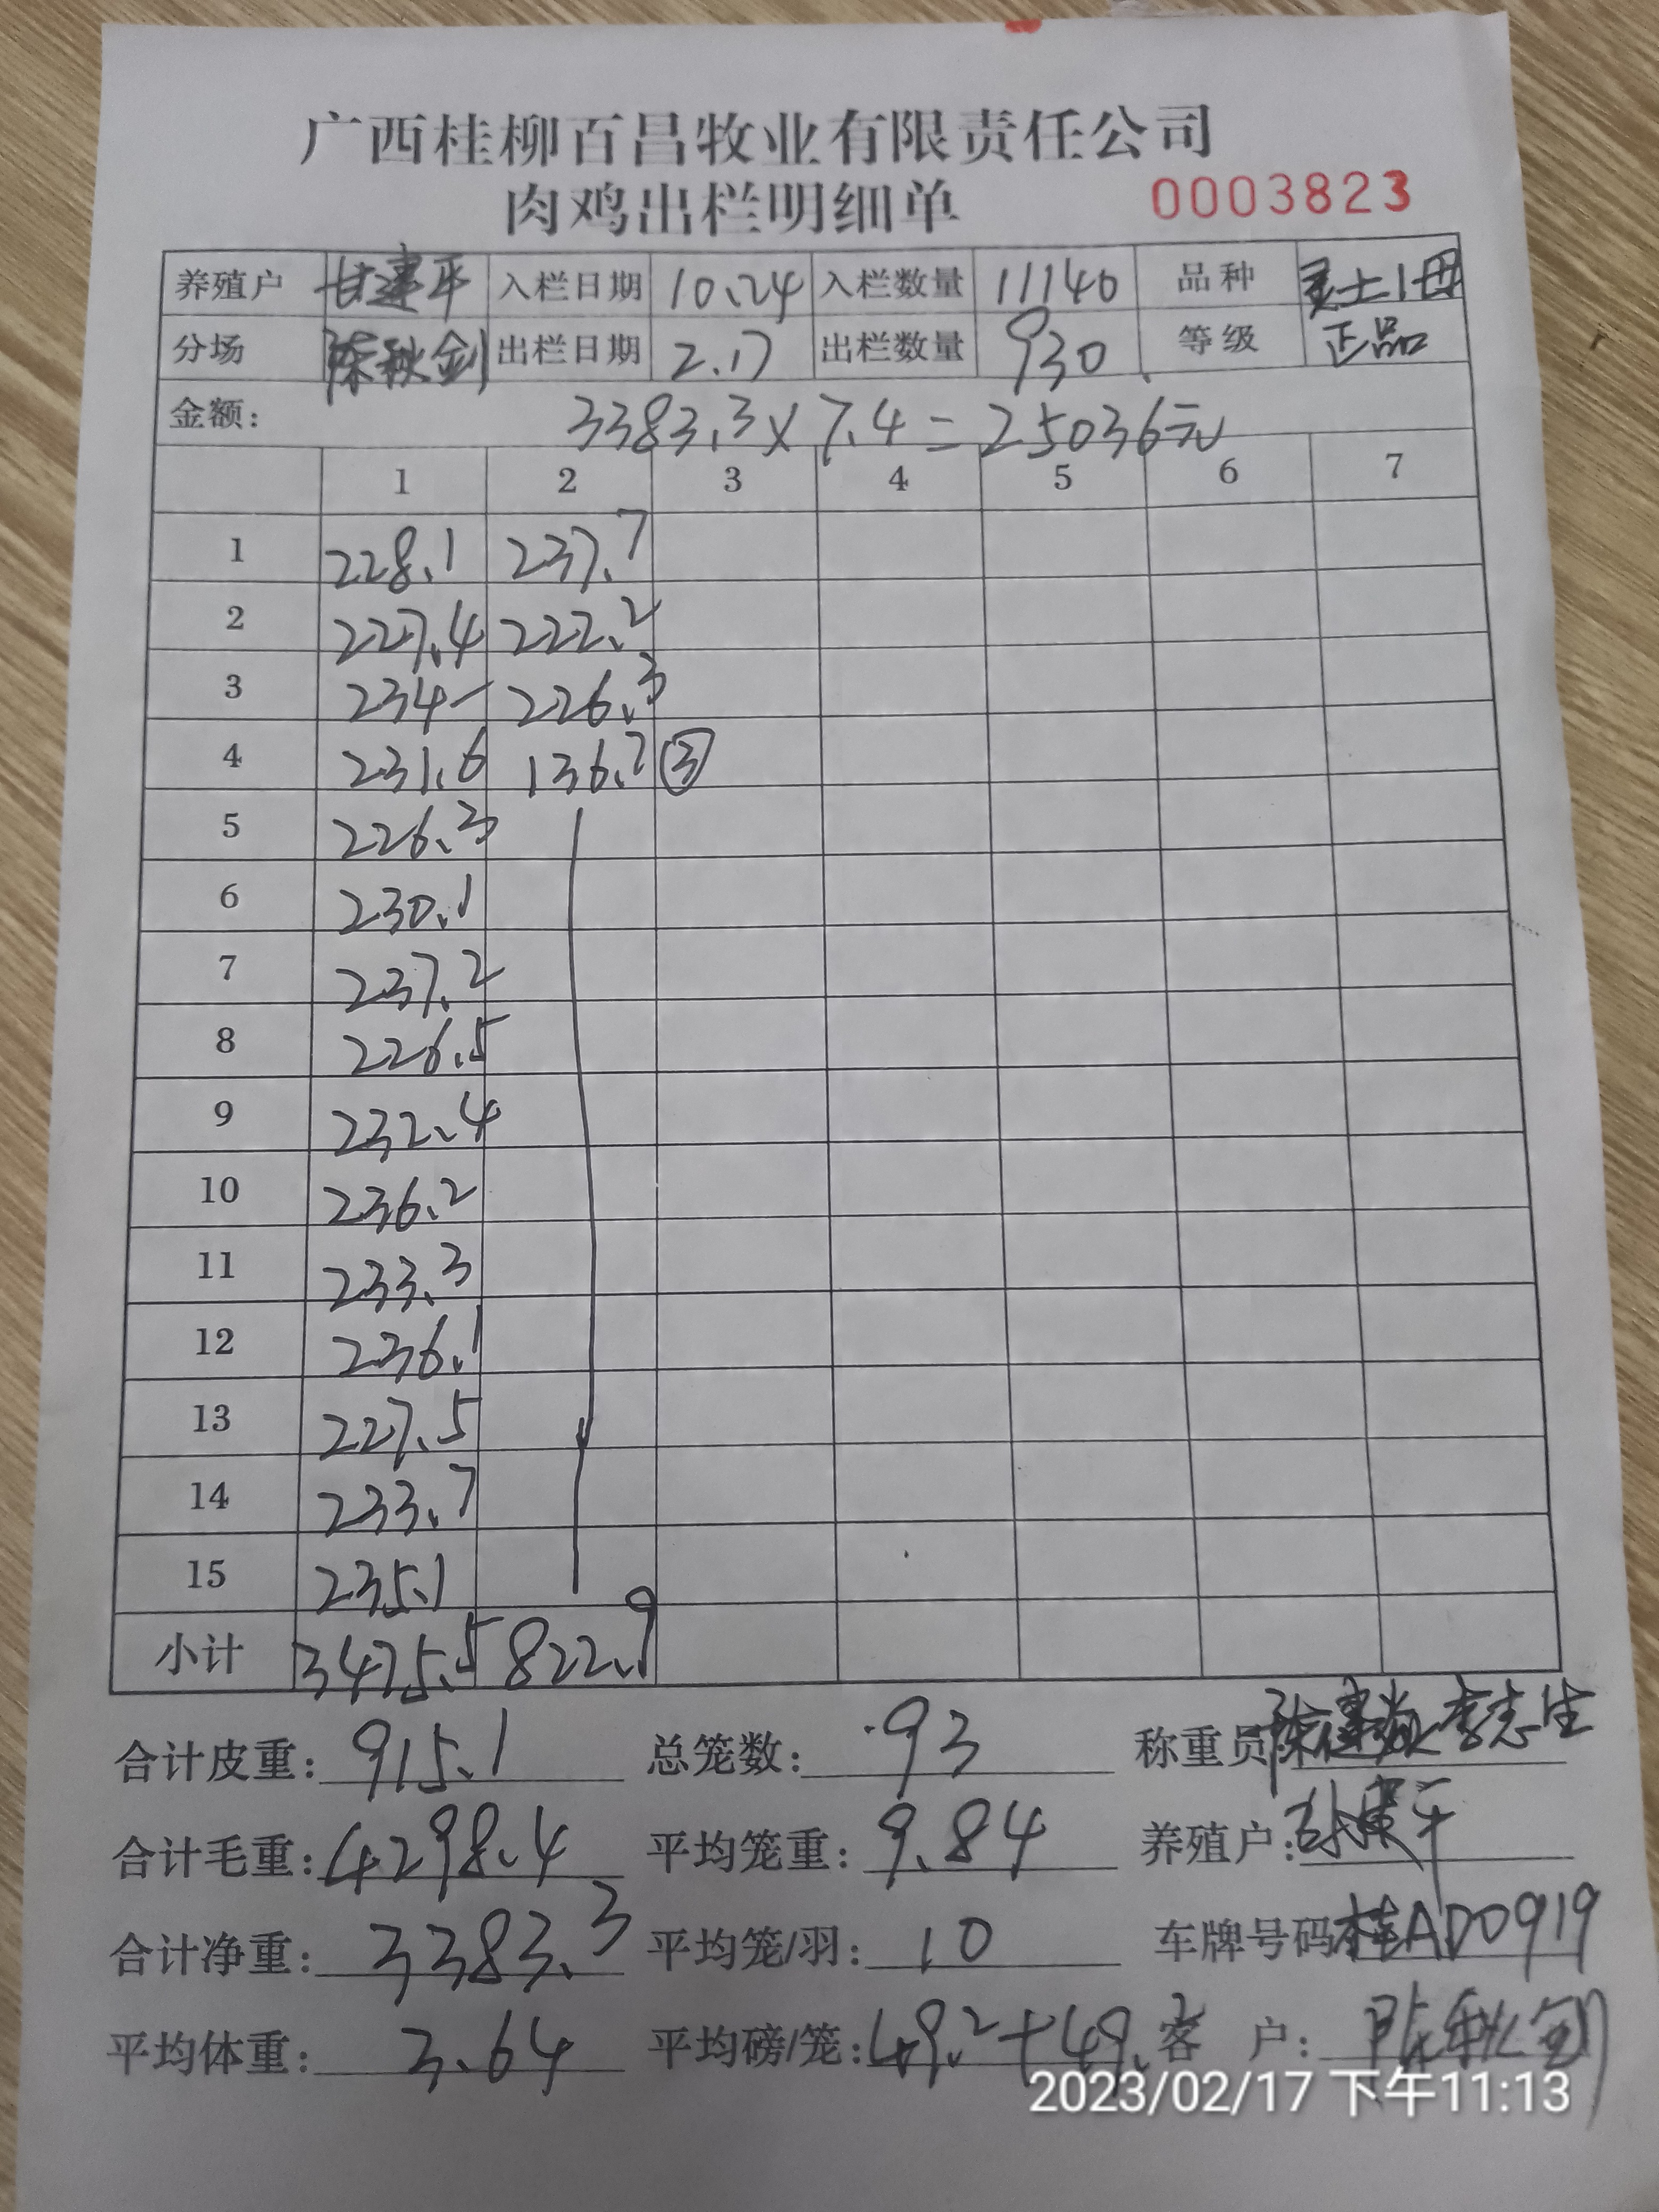 广西桂柳百昌牧业有限责任公司
肉鸡出栏明细单 0003823
养殖户 甘建平 入栏日期 10.24 入栏数量 11140 品种 灵土1母
分场 陈秋剑 出栏日期 2.17 出栏数量 930 等级 正品
金额: 3383.3×7.4=25036元
1 2 3 4 5 6 7
1 228.1 237.7
2 227.4 222.2
3 234- 226.3
4 231.6 136.7 ③
5 226.3
6 230.1
7 237.2
8 226.5
9 232.4
10 236.2
11 233.3
12 236.1
13 227.5
14 233.7
15 235.1
小计 3475.5 822.9
合计皮重: 915.1 总笼数: 93 称重员 李志生
合计毛重: 4298.4 平均笼重: 9.84 养殖户:
合计净重: 3383.3 平均笼/羽: 10 车牌号码 桂AD0919
平均体重: 3.64 平均磅/笼: 49.2+49.2 客户: 陈秋剑
2023/02/17 下午11:13